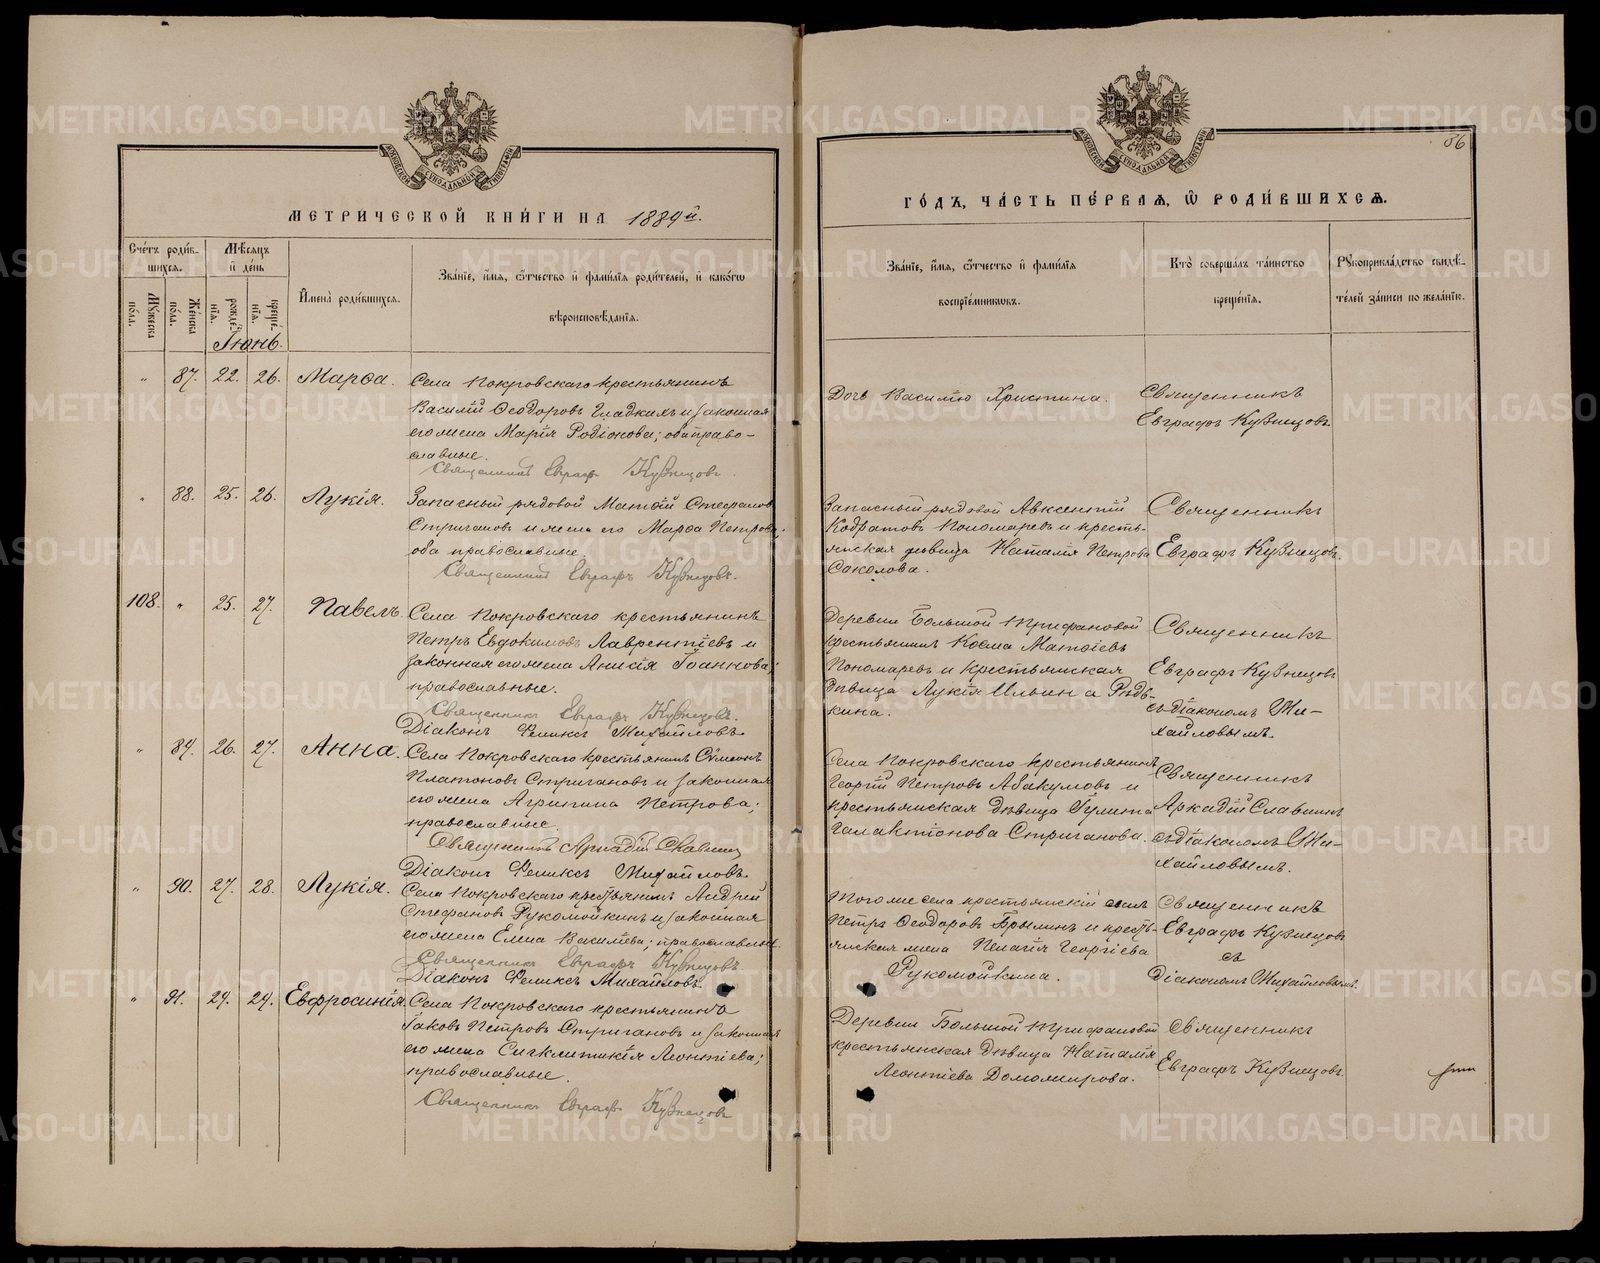 МЕТРИЧЕСКОЙ КНИГИ НА 1889й.
Счетъ родив-
шихся.
Мѣсяцъ
и день
Имена родившихся.
Званіе, имя, отчество и фамилія родителей, и какого
вѣроисповѣданія.
Мужеска
пола.
Женска
пола.
рожде-
нія.
креще-
нія.
Іюнь.
" 87. 22. 26. Марѳа.
Села Покровскаго крестьянинъ
Василій Ѳеодоровъ Гладкихъ и законная
его жена Марія Родіонова; оба право-
славные.
Священникъ Евграфъ Кузнецовъ.
" 88. 25. 26. Лукія.
Запасный рядовой Матѳій Стефановъ
Стригановъ и жена его Марѳа Петрова;
оба православные.
Священникъ Евграфъ Кузнецовъ.
108. " 25. 27. Павелъ.
Села Покровскаго крестьянинъ
Петръ Евдокимовъ Лаврентіевъ и
законная его жена Анисія Іоаннова;
православные.
Священникъ Евграфъ Кузнецовъ.
Діаконъ Феликсъ Михайловъ.
" 89. 26. 27. Анна.
Села Покровскаго крестьянинъ Сѵмеонъ
Платоновъ Стригановъ и законная
его жена Агрипина Петрова;
православные.
Священникъ Аркадій Славнинъ
Діаконъ Феликсъ Михайловъ.
" 90. 27. 28. Лукія.
Села Покровскаго крестьянинъ Андрей
Стефановъ Рукомойкинъ и законная
его жена Елена Василіева; православные.
Священникъ Евграфъ Кузнецовъ
Діаконъ Феликсъ Михайловъ.
" 91. 29. 29. Евфросинія.
Села Покровскаго крестьянинъ
Іаковъ Петровъ Стригановъ и законная
его жена Сигклитикія Леонтіева;
православные.
Священникъ Евграфъ Кузнецовъ
86
ГОДЪ, ЧАСТЬ ПЕРВАЯ, Ѡ РОДИВШИХСЯ.
Званіе, имя, отчество и фамилія
воспріемниковъ.
Кто совершалъ таинство
крещенія.
Рукоприкладство свидѣ-
телей записи по желанію.
Дочь Василію Христина.
Священникъ
Евграфъ Кузнецовъ.
Запасный рядовой Авксентій
Кодратовъ Пономаревъ и кресть-
янская дѣвица Наталія Петрова
Саколова.
Священникъ
Евграфъ Кузнецовъ.
Деревни Большой Трифановой
крестьянинъ Косма Матѳіевъ
Пономаревъ и крестьянская
дѣвица Лукія Ильина Рѣдь-
кина.
Священникъ
Евграфъ Кузнецовъ
съ діакономъ Ми-
хайловымъ.
Села Покровскаго крестьянинъ
Георгій Петровъ Абакумовъ и
крестьянская дѣвица Іулита
Галактіонова Стриганова.
Священникъ
Аркадій Славнинъ
съ діакономъ Ми-
хайловымъ.
Того же села крестьянскій сынъ
Петръ Ѳеодоровъ Брылинъ и кресть-
янская жена Пелагія Георгіева
Рукомойкина.
Священникъ
Евграфъ Кузнецовъ
съ
Діакономъ Михайловымъ.
Деревни Большой Трифановой
крестьянская дѣвица Наталія
Леонтіева Доможирова.
Священникъ
Евграфъ Кузнецовъ.
METRIKI.GASO-URAL.RU